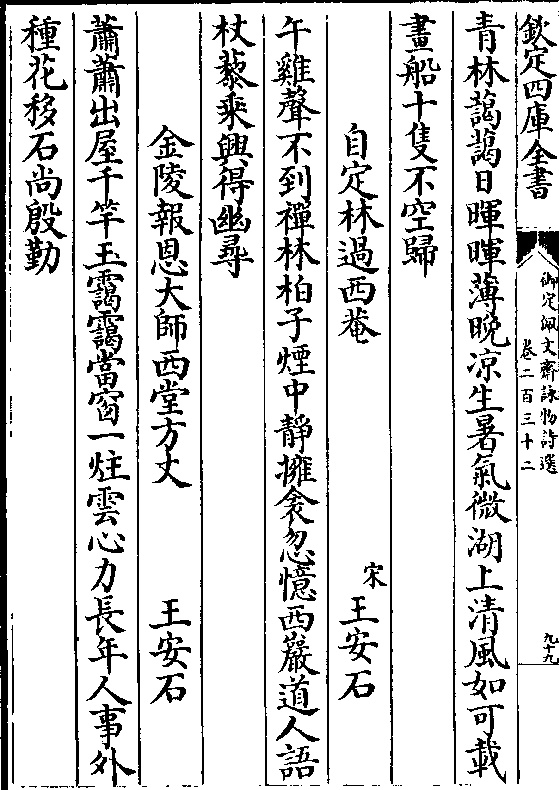 欽定四庫全書
御定佩文齋詠物詩選
卷二百三十二
九十九
青林藹藹日暉暉薄晚凉生暑氣微湖上清風如可載
畫船十隻不空歸
自定林過西菴
宋王安石
午雞聲不到禪林柏子煙中靜擁衾忽憶西巖道人語
杖藜乘興得幽尋
金陵報恩大師西堂方丈
王安石
蕭蕭出屋千竿玉靄靄當窗一炷雲心力長年人事外
種花移石尚殷勤